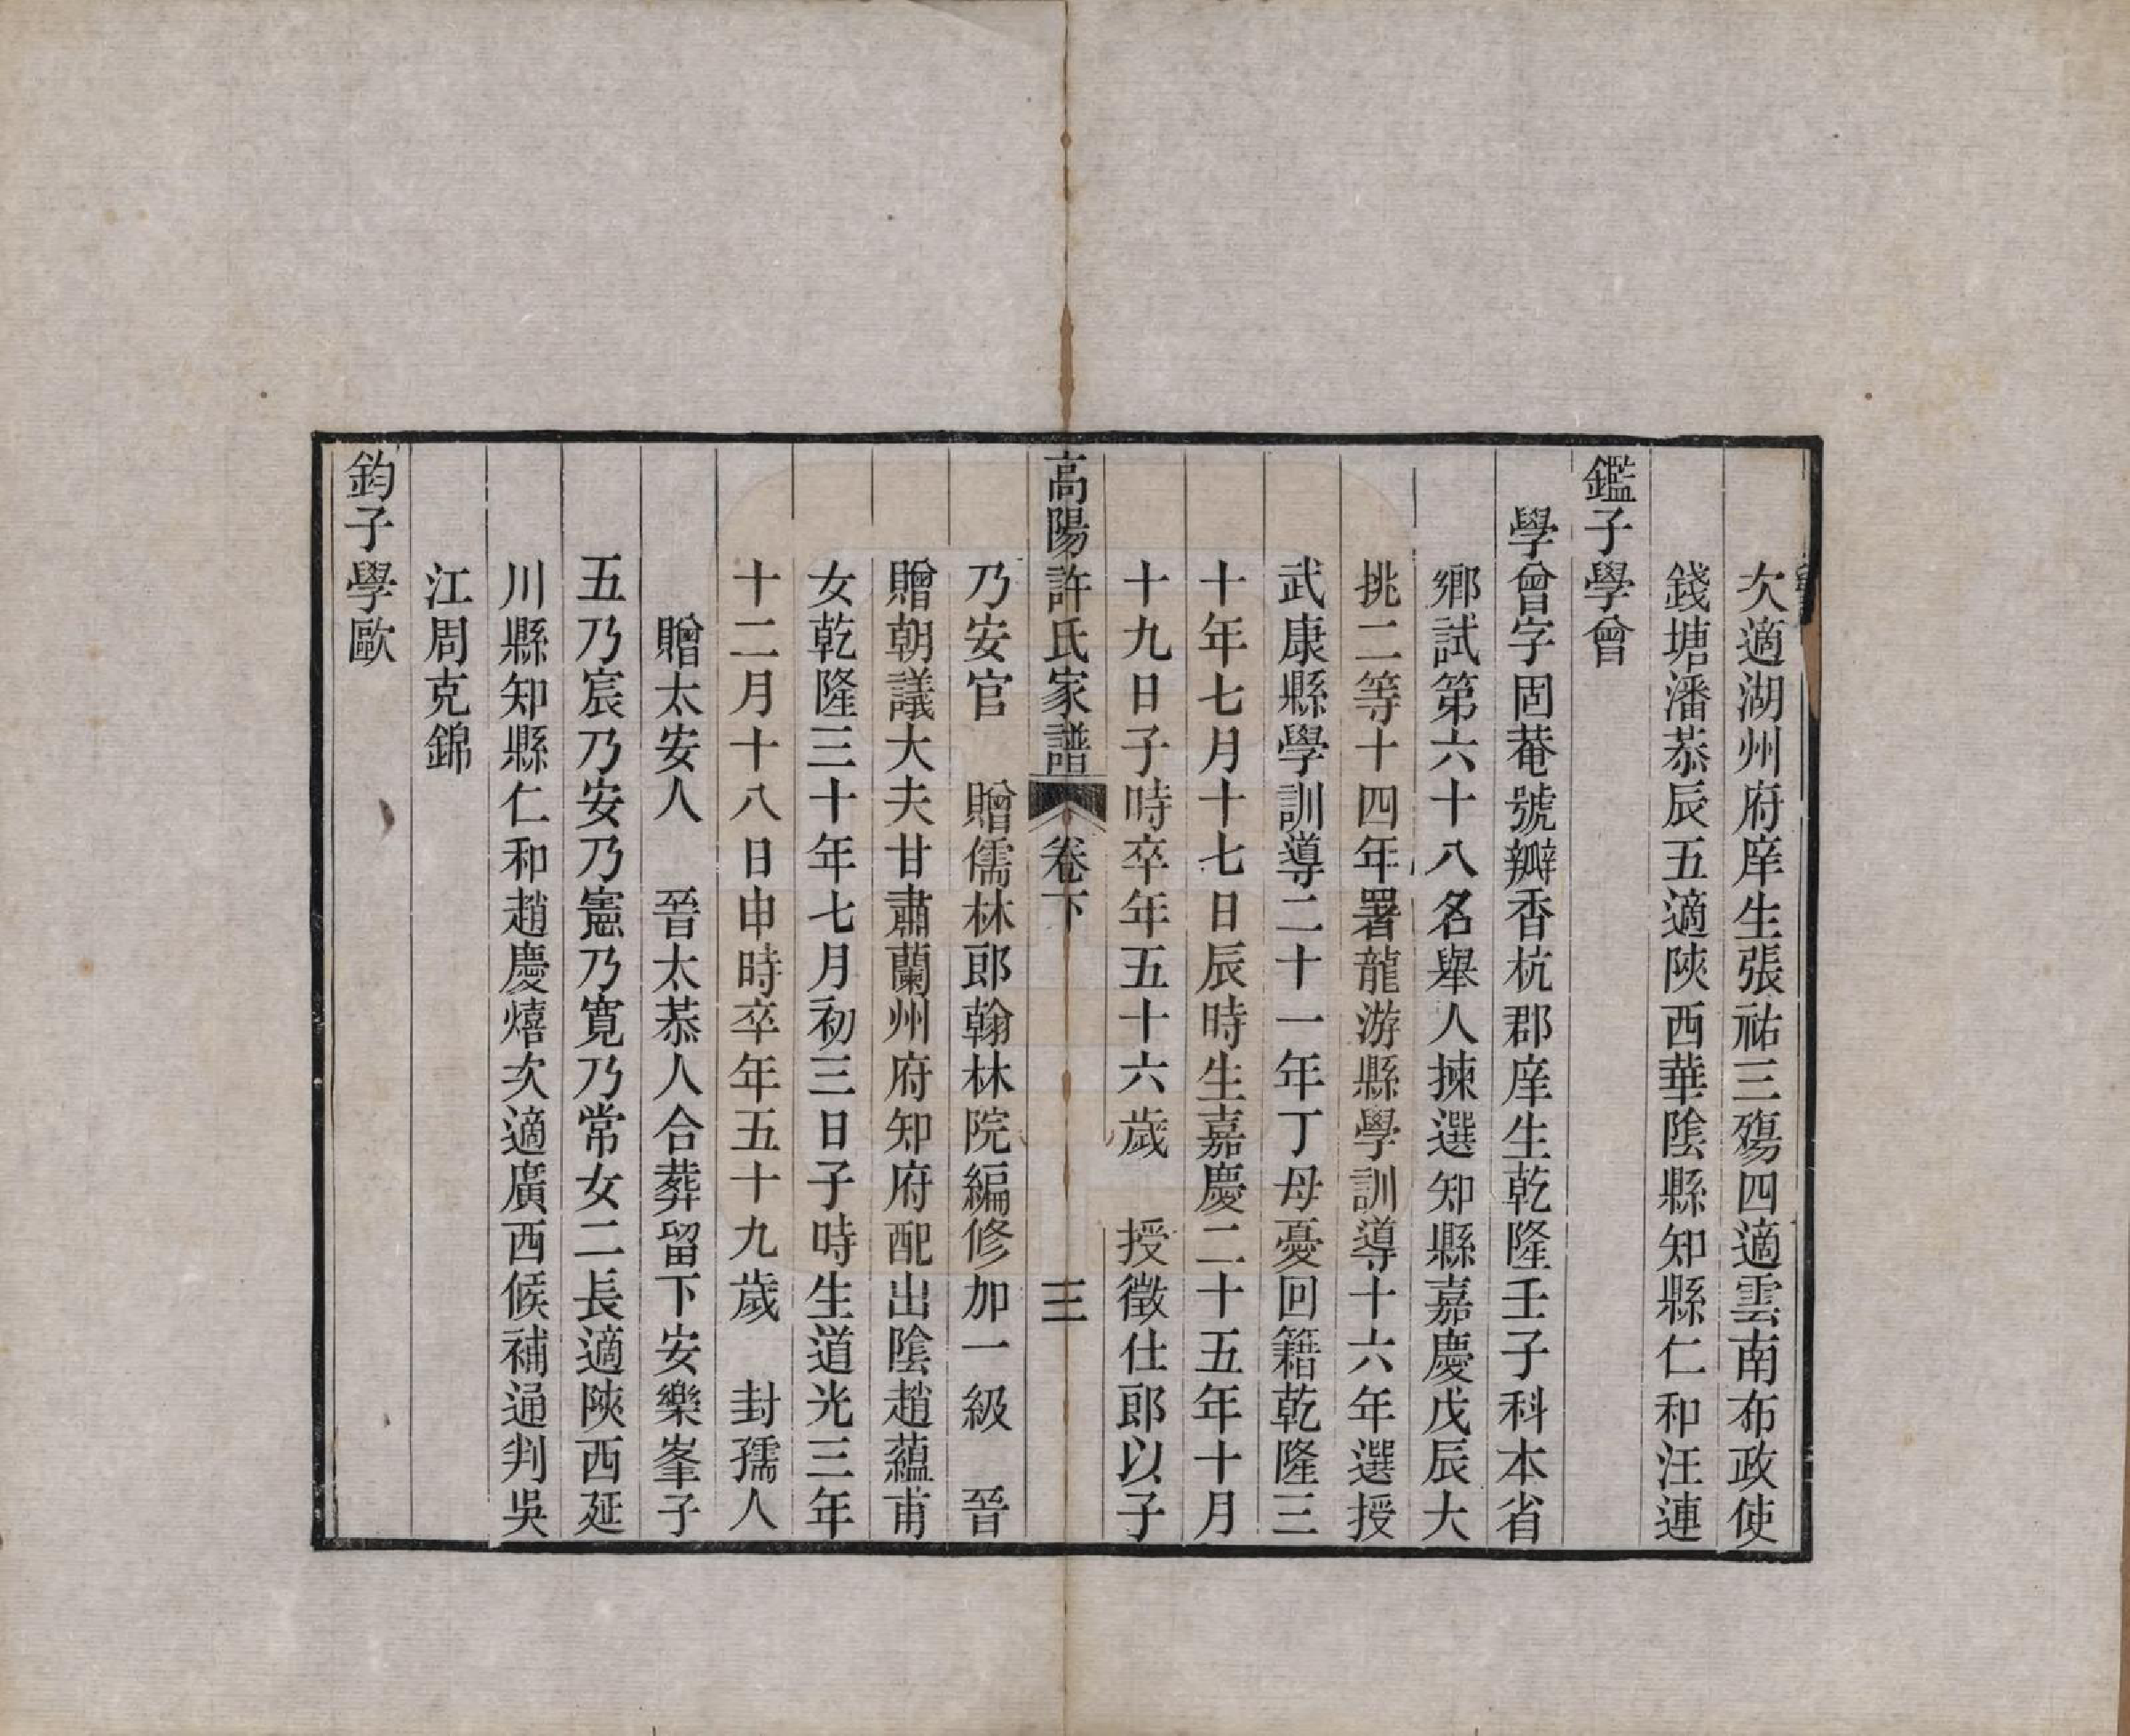 次適湖州府庠生張祐三殤四適雲南布政使
錢塘潘恭辰五適陝西華陰縣知縣仁和汪連
鑑子學曾
學曾字固菴號瓣香杭郡庠生乾隆壬子科本省
鄉試第六十八名舉人揀選知縣嘉慶戊辰大
挑二等十四年署龍游縣學訓導十六年選授
武康縣學訓導二十一年丁母憂回籍乾隆三
十年七月十七日辰時生嘉慶二十五年十月
十九日子時卒年五十六歲 授徵仕郎以子
高陽許氏家譜 卷下 三
乃安官 贈儒林郎翰林院編修加一級 晉
贈朝議大夫甘肅蘭州府知府配出陰趙蘊甫
女乾隆三十年七月初三日子時生道光三年
十二月十八日申時卒年五十九歲 封孺人
贈太安人 晉太恭人合葬留下安樂峯子
五乃宸乃安乃憲乃寬乃常女二長適陝西延
川縣知縣仁和趙慶熺次適廣西候補通判吳
江周克錦
鈞子學歐